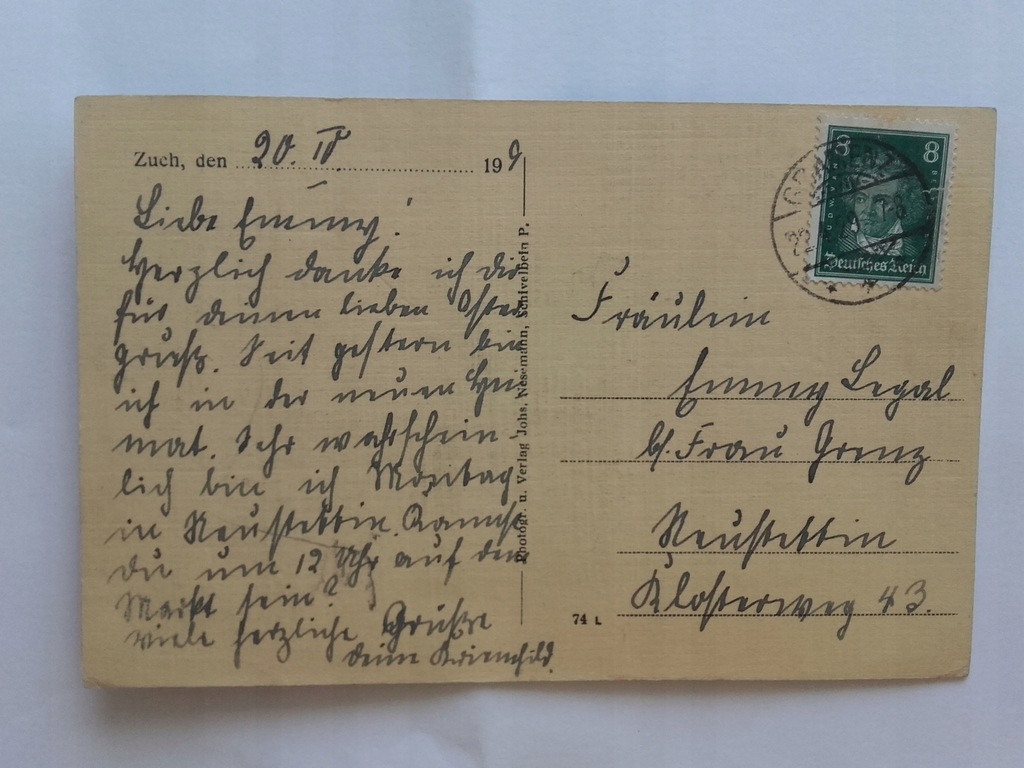 Zuch, den 20. IV 19
Liebe Emmy!
Herzlich danke ich dir
für deinen lieben Oster
gruß. Seit gestern bin
ich in der neuen Hei
mat. Sehr wahrschein-
lich bin ich Montag
in Neustettin. Kannst
du um 12 Uhr auf dem
Markt sein?
Viele herzliche Grüße
deine
Photogr. u. Verlag Johs. Nesemann, Schivelbein P.
8 8
LUDWIG V
Deutsches Reich
22
Fräulein
Emmy Legal
b/. Frau Grenz
Neustettin
Klosterweg 43.
74 L